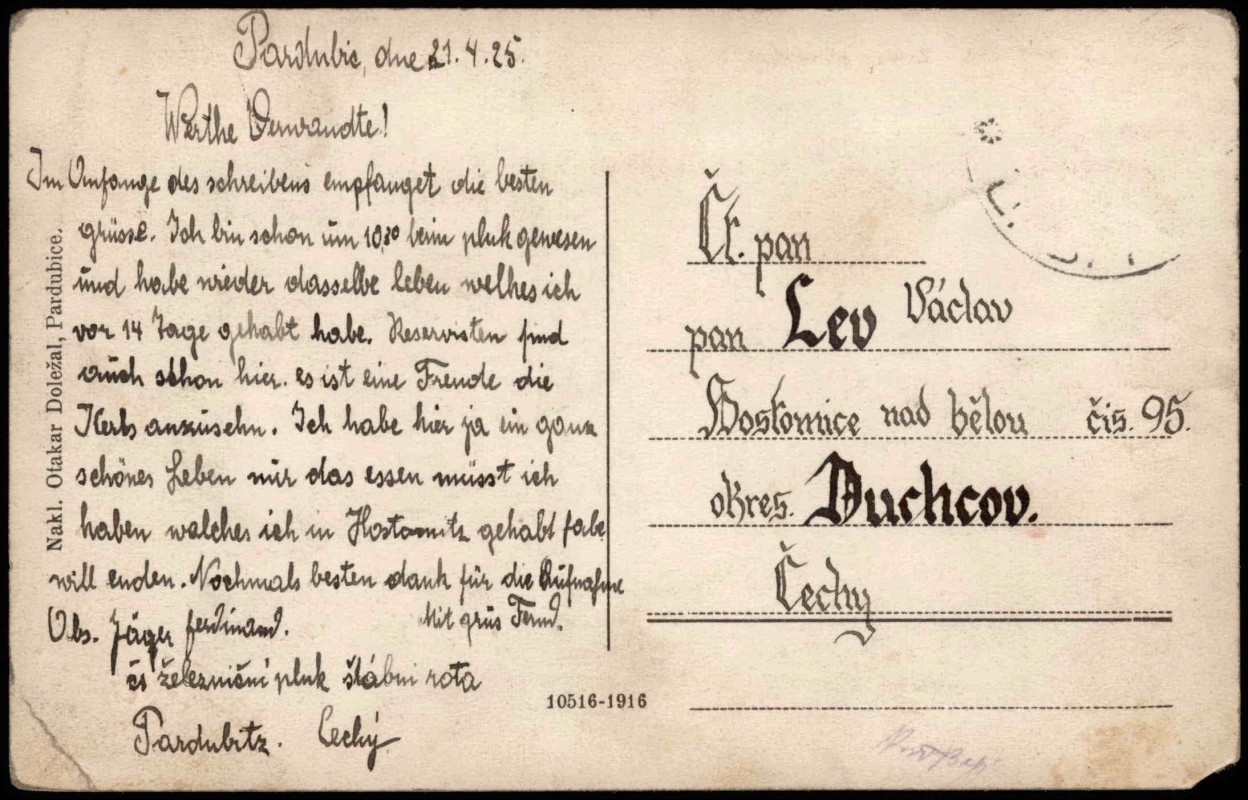 Pardubic, dne 21.4.25.
Werthe Verwandte!
Im Anfange des schreibens empfanget die besten
grüsse. Ich bin schon um 10,30 beim pluk gewesen
und habe wieder dasselbe leben welhes ich
vor 14 Tage gehabt habe. Reservisten sind
auch schon hier. es ist eine Freude die
Kerls anzusehn. Ich habe hier ja ein ganz
schönes Leben nur das essen müsst ich
haben walches ich in Hostomitz gehabt habe
will enden. Nochmals besten dank für die Aufnahme
Mit grüs Fernd.
Obs. Jäger ferdinand.
čs železniční pluk štábni rota
Pardubitz. Čechý
Nakl. Otakar Doležal, Pardubice.
10516-1916
Čt. pan
pan Lev Václav
Hostomice nad bělou čis. 95.
okres. Duchcov.
Čechy